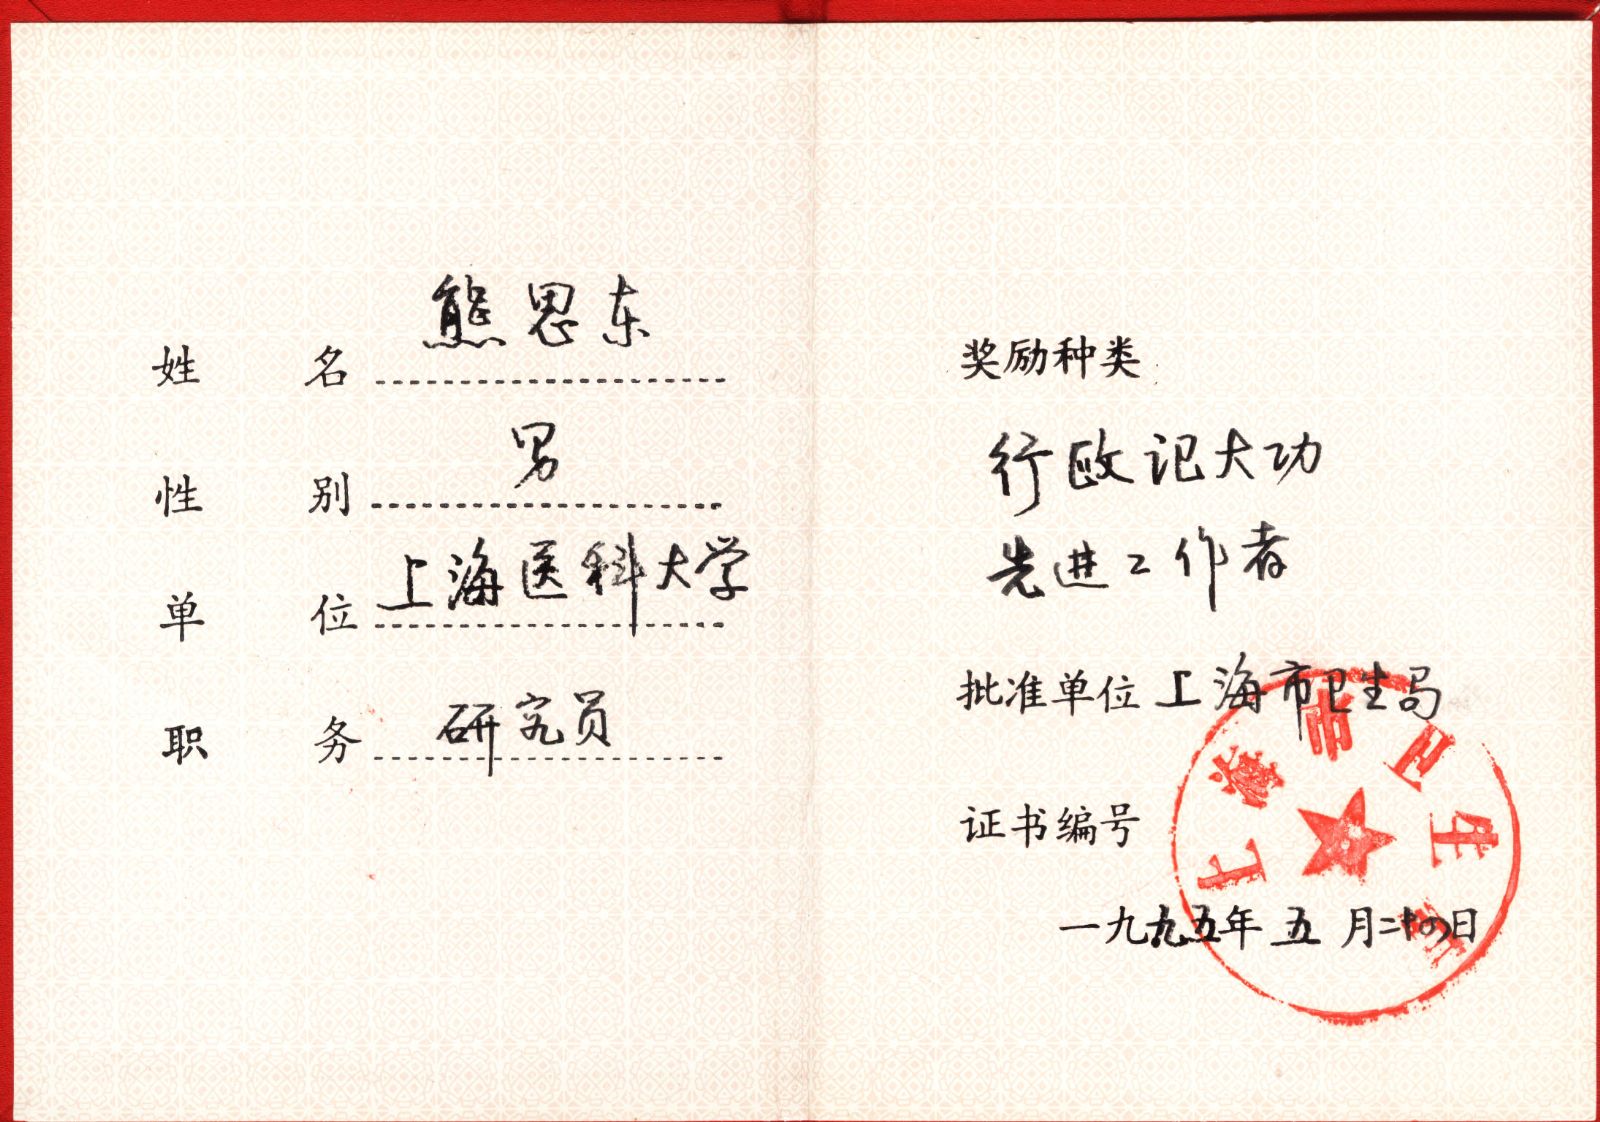 姓 名 熊思东
性 别 男
单 位 上海医科大学
职 务 研究员
奖励种类
行政记大功
先进工作者
批准单位 上海市卫生局
证书编号
一九九五年 五 月二十四日
上海市卫生局